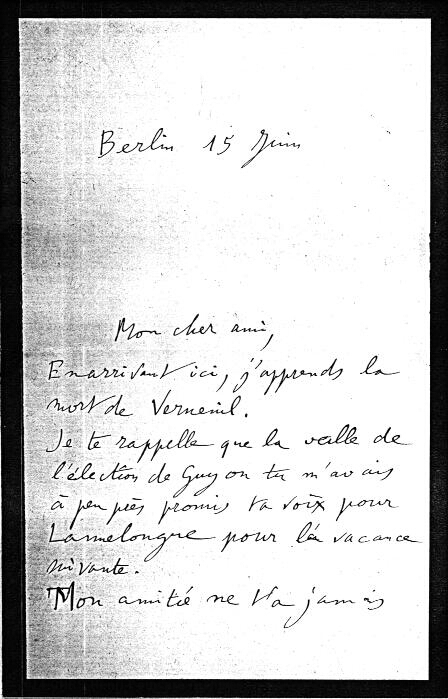 Berlin 15 Juin
Mon cher ami,
En arrivant ici, j'apprends la
mort de Verneuil.
Je te rappelle que la veille de
l'élection de Guyon tu m'avais
à peu près promis ta voix pour
Lannelongue pour la vacance
suivante.
Mon amitié ne t'a jamais